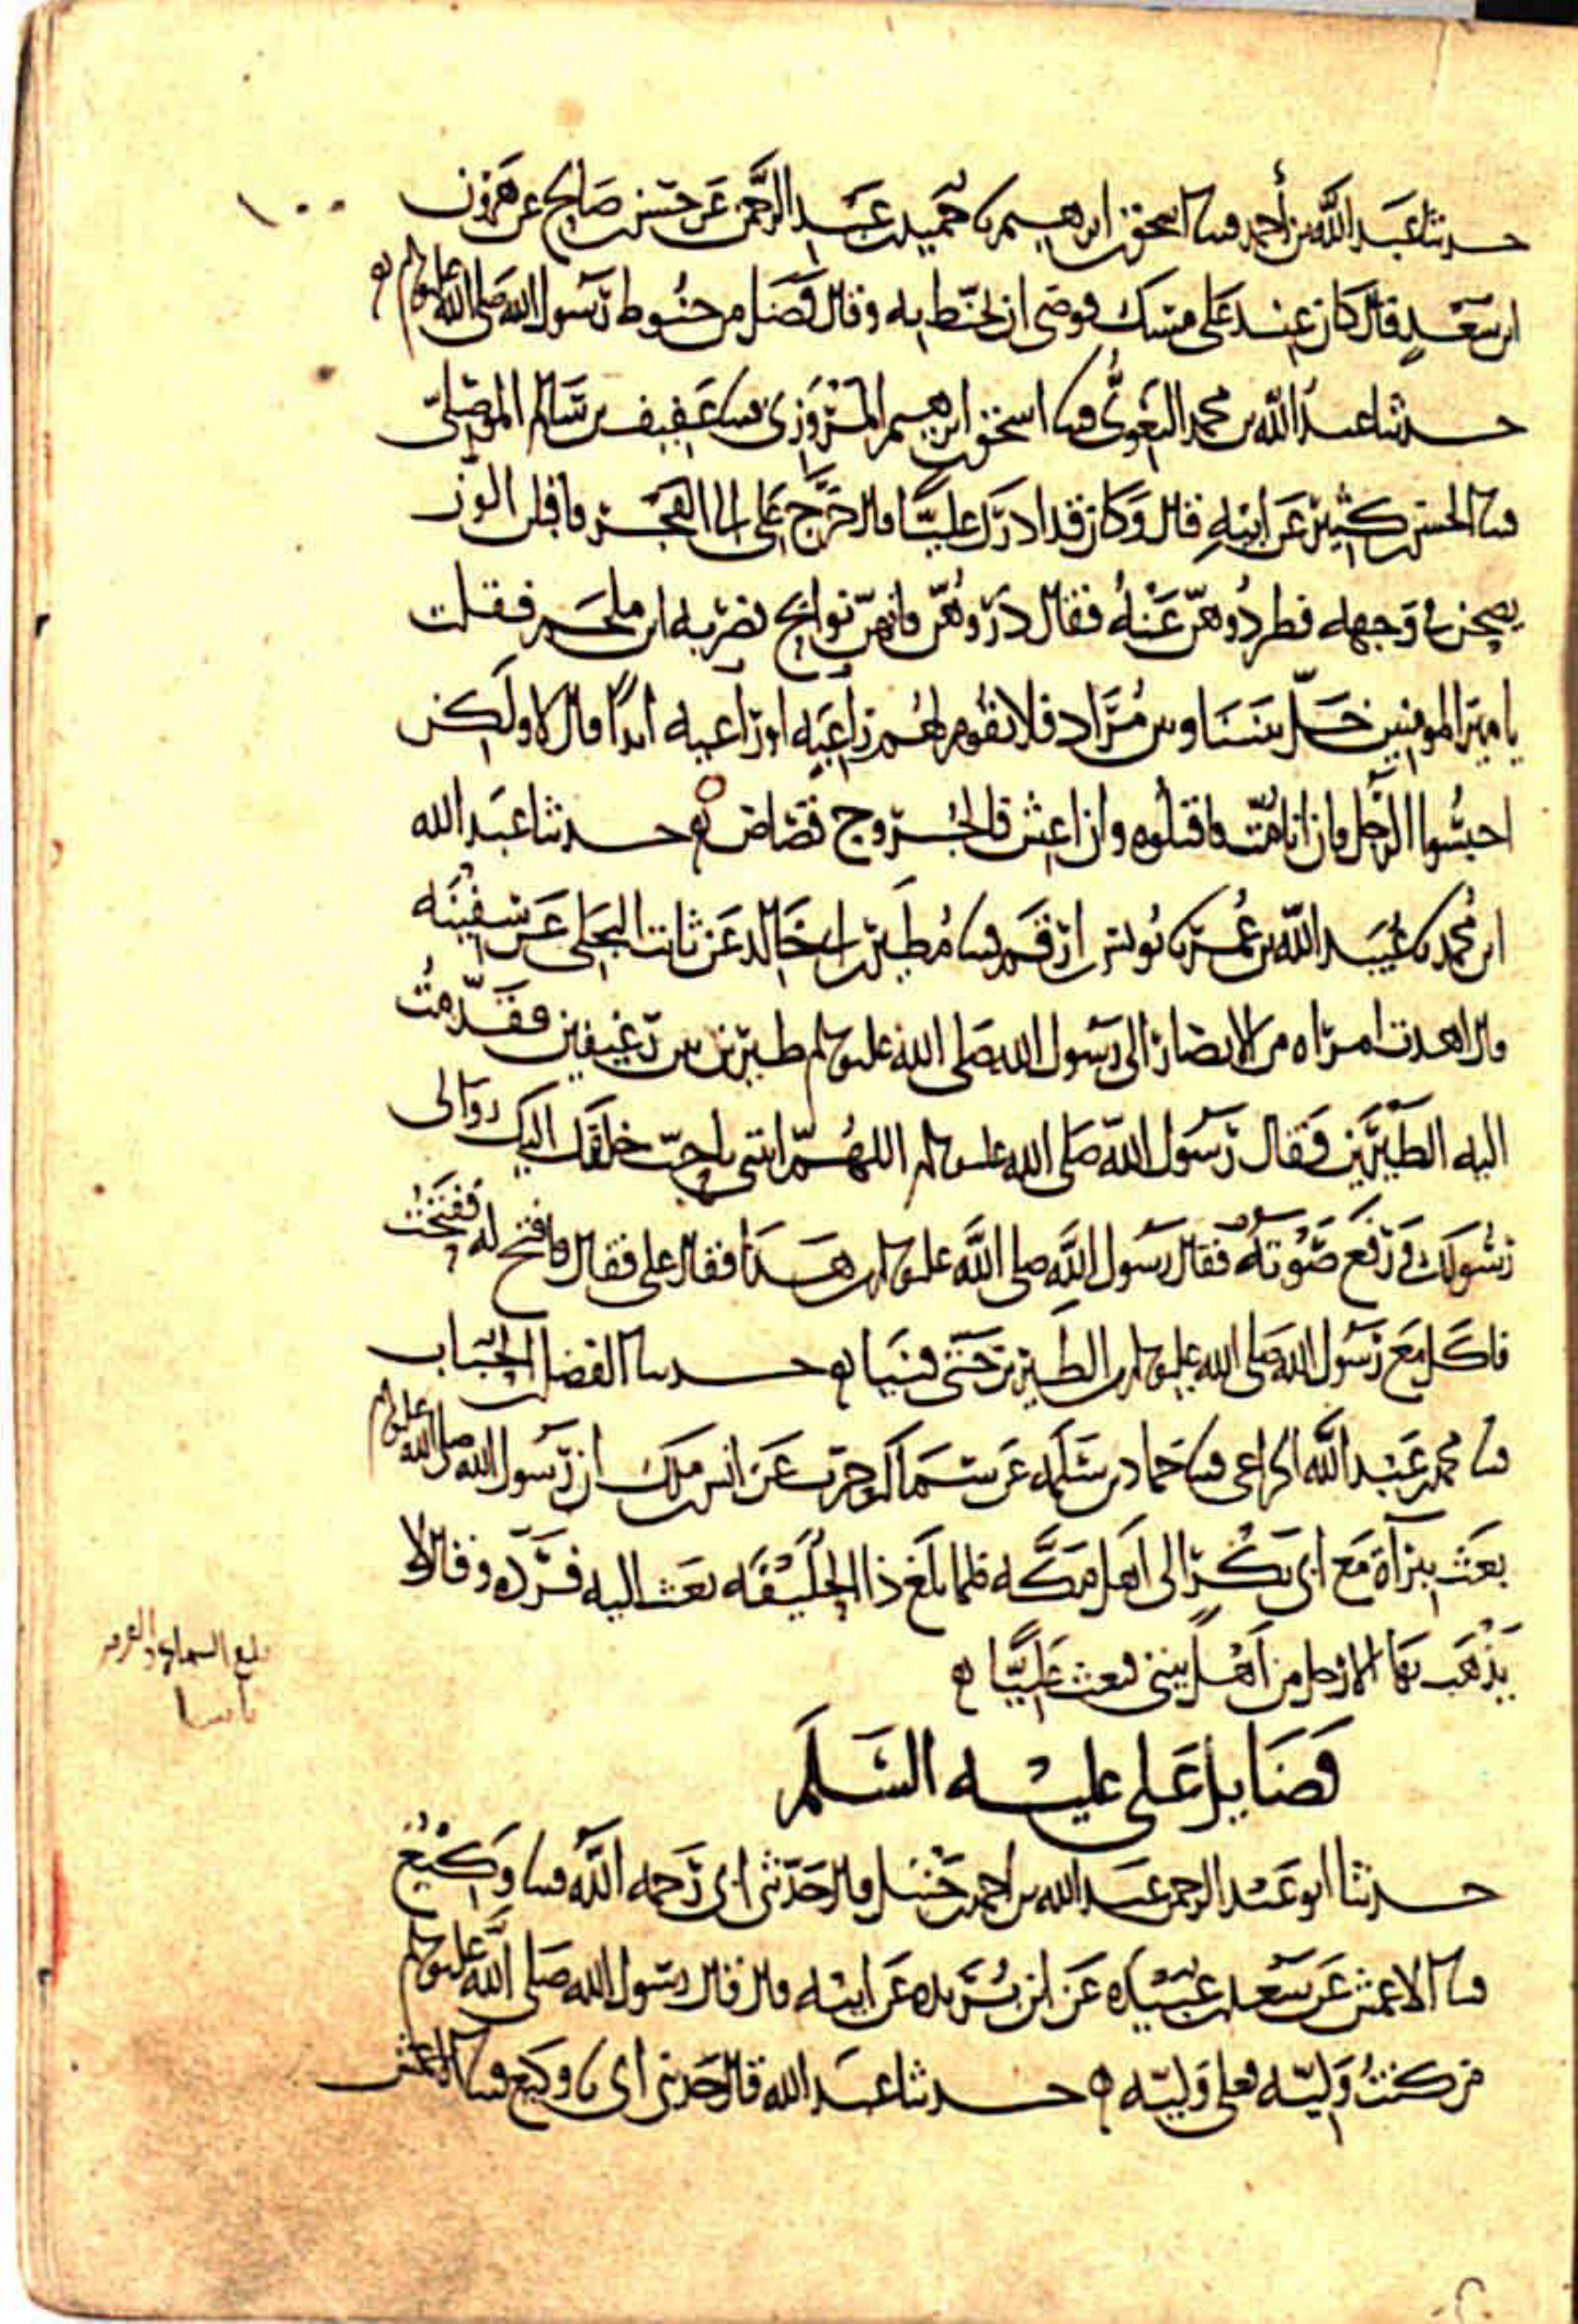 حدثنا عبد الله بن أحمد قثنا اسحق بن ابرهيم نا حميد بن عبد الرحمن عن حسن بن صالح عن هرون
ابن سعد قال كان عند على مسك فوصى ان يحنط به وقال فضل من حنوط رسول الله صلى الله عليه وسلم
حدثنا عبد الله بن محمد البغوى قثنا اسحق بن ابرهيم المروزى قثنا عفيف بن سالم الموصلى
قثنا الحسن بن كثير عن ابيه قال وكان قد ادرك عليا قال خرج على الى الفجر فاقبلن الوز
يصحن فى وجهه فطردوهن عنه فقال ذروهن فانهن نوايح فضربه ابن ملجم فقلت
يا امير المومنين خل بيننا وبين مراد فلا تقوم لهم زاعيه او راعيه ابدا قال لا ولكن
احبسوا الرجل فان انا مت فاقتلوه وان اعش فالجروح قصاص حدثنا عبد الله
ابن محمد نا عبيد الله بن عمر نا يونس بن ارقم قثنا مطير بن ابى خالد عن ثابت البجلى عن سفينه
قال اهدت امراه من الانصار الى رسول الله صلى الله عليه وسلم طيرين بين رغيفين فقدمت
اليه الطيرين فقال رسول الله صلى الله عليه وسلم اللهم ايتنى باحب خلقك اليك والى
رسولك ورفع صوته فقال رسول الله صلى الله عليه وسلم من هذا فقال على فقال فافتح له ففتحت
فاكل مع رسول الله صلى الله عليه وسلم من الطيرين حتى فنيا حدثنا الفضل بن الحباب
قثنا محمد بن عبد الله الخزاعى قثنا حماد بن سلمه عن سماك بن حرب عن انس بن ملك ان رسول الله صلى الله عليه وسلم
بعث ببرآة مع ابى بكر الى اهل مكه فلما بلغ ذا الحليفه بعث اليه فرده وقال لا
يذهب بها الا رجل من اهل بيتى فبعث عليا
فضايل على عليه السلم
حدثنا ابو عبد الرحمن عبد الله بن احمد بن حنبل قال حدثنى ابى رحمه الله قثنا وكيع
قثنا الاعمش عن سعد بن عبيده عن ابن بريده عن ابيه قال قال رسول الله صلى الله عليه وسلم
من كنت وليه فعلى وليه حدثنا عبد الله قال حدثنى ابى نا وكيع قثنا الاعمش